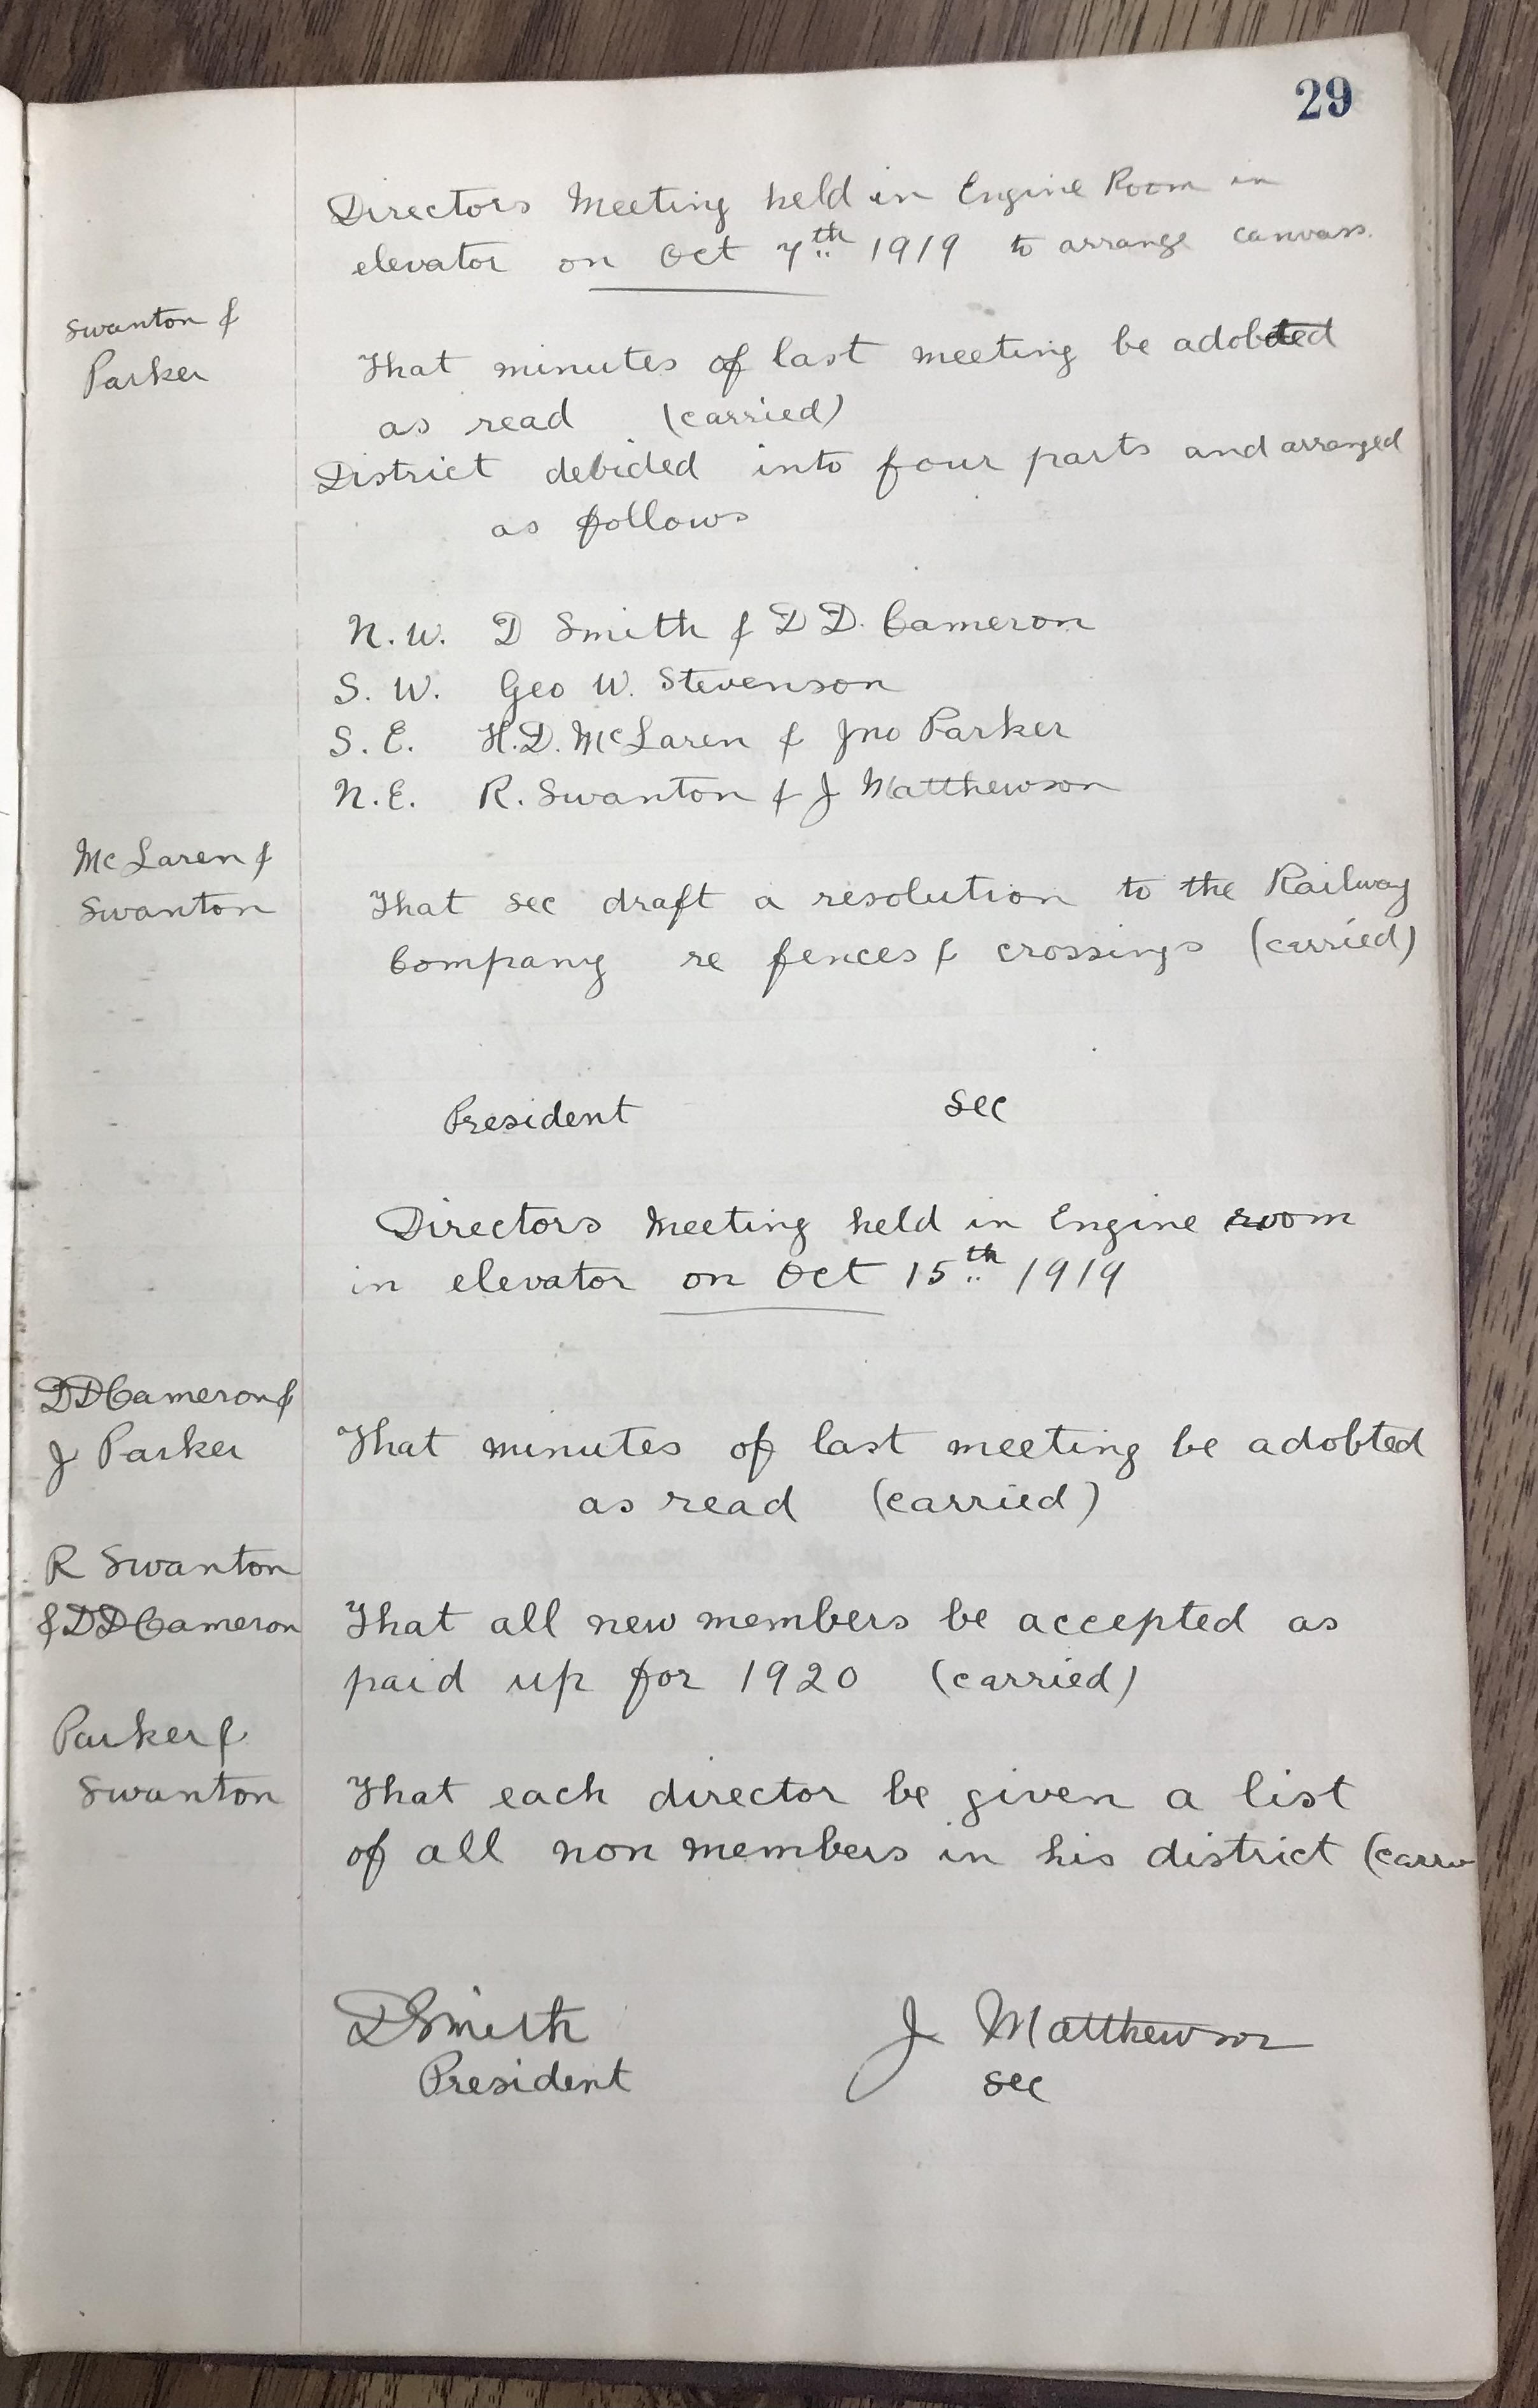 29
Directors Meeting held in Engine Room in
elevator on Oct 7th 1919 to arrange canvass.
Swanton &
Parker
That minutes of last meeting be adobted
as read (carried)
District debided into four parts and arranged
as follows
N.W. D Smith & D D. Cameron
S. W. Geo W. Stevenson
S. E. H.D. McLaren & Jno Parker
N.E. R. Swanton & J Matthewson
McLaren &
Swanton
That sec draft a resolution to the Railway
Company re fences & crossings (carried)
President sec
Directors Meeting held in Engine room
in elevator on Oct 15th 1919
DDCameron &
J Parker
That minutes of last meeting be adobted
as read (carried)
R Swanton
& DDCameron
That all new members be accepted as
paid up for 1920 (carried)
Parker &
Swanton
That each director be given a list
of all non members in his district (carri
DSmith J Matthewson
President sec